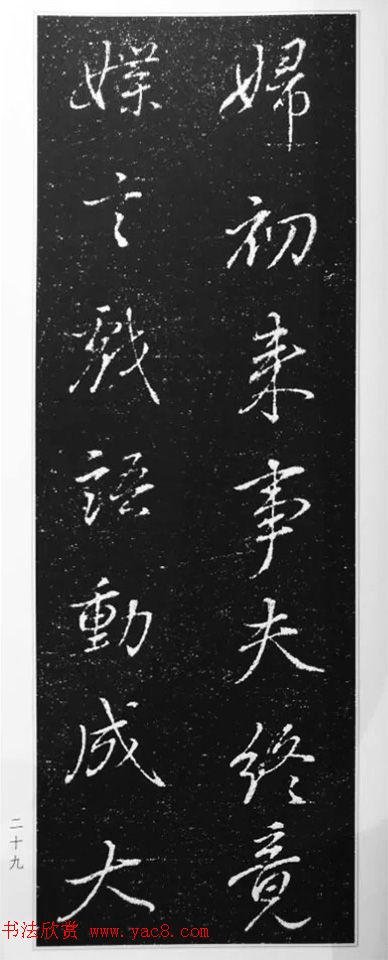 婦初來事夫終竟
媟言戲語動成大
二十九
书法欣赏 www.yac8.com